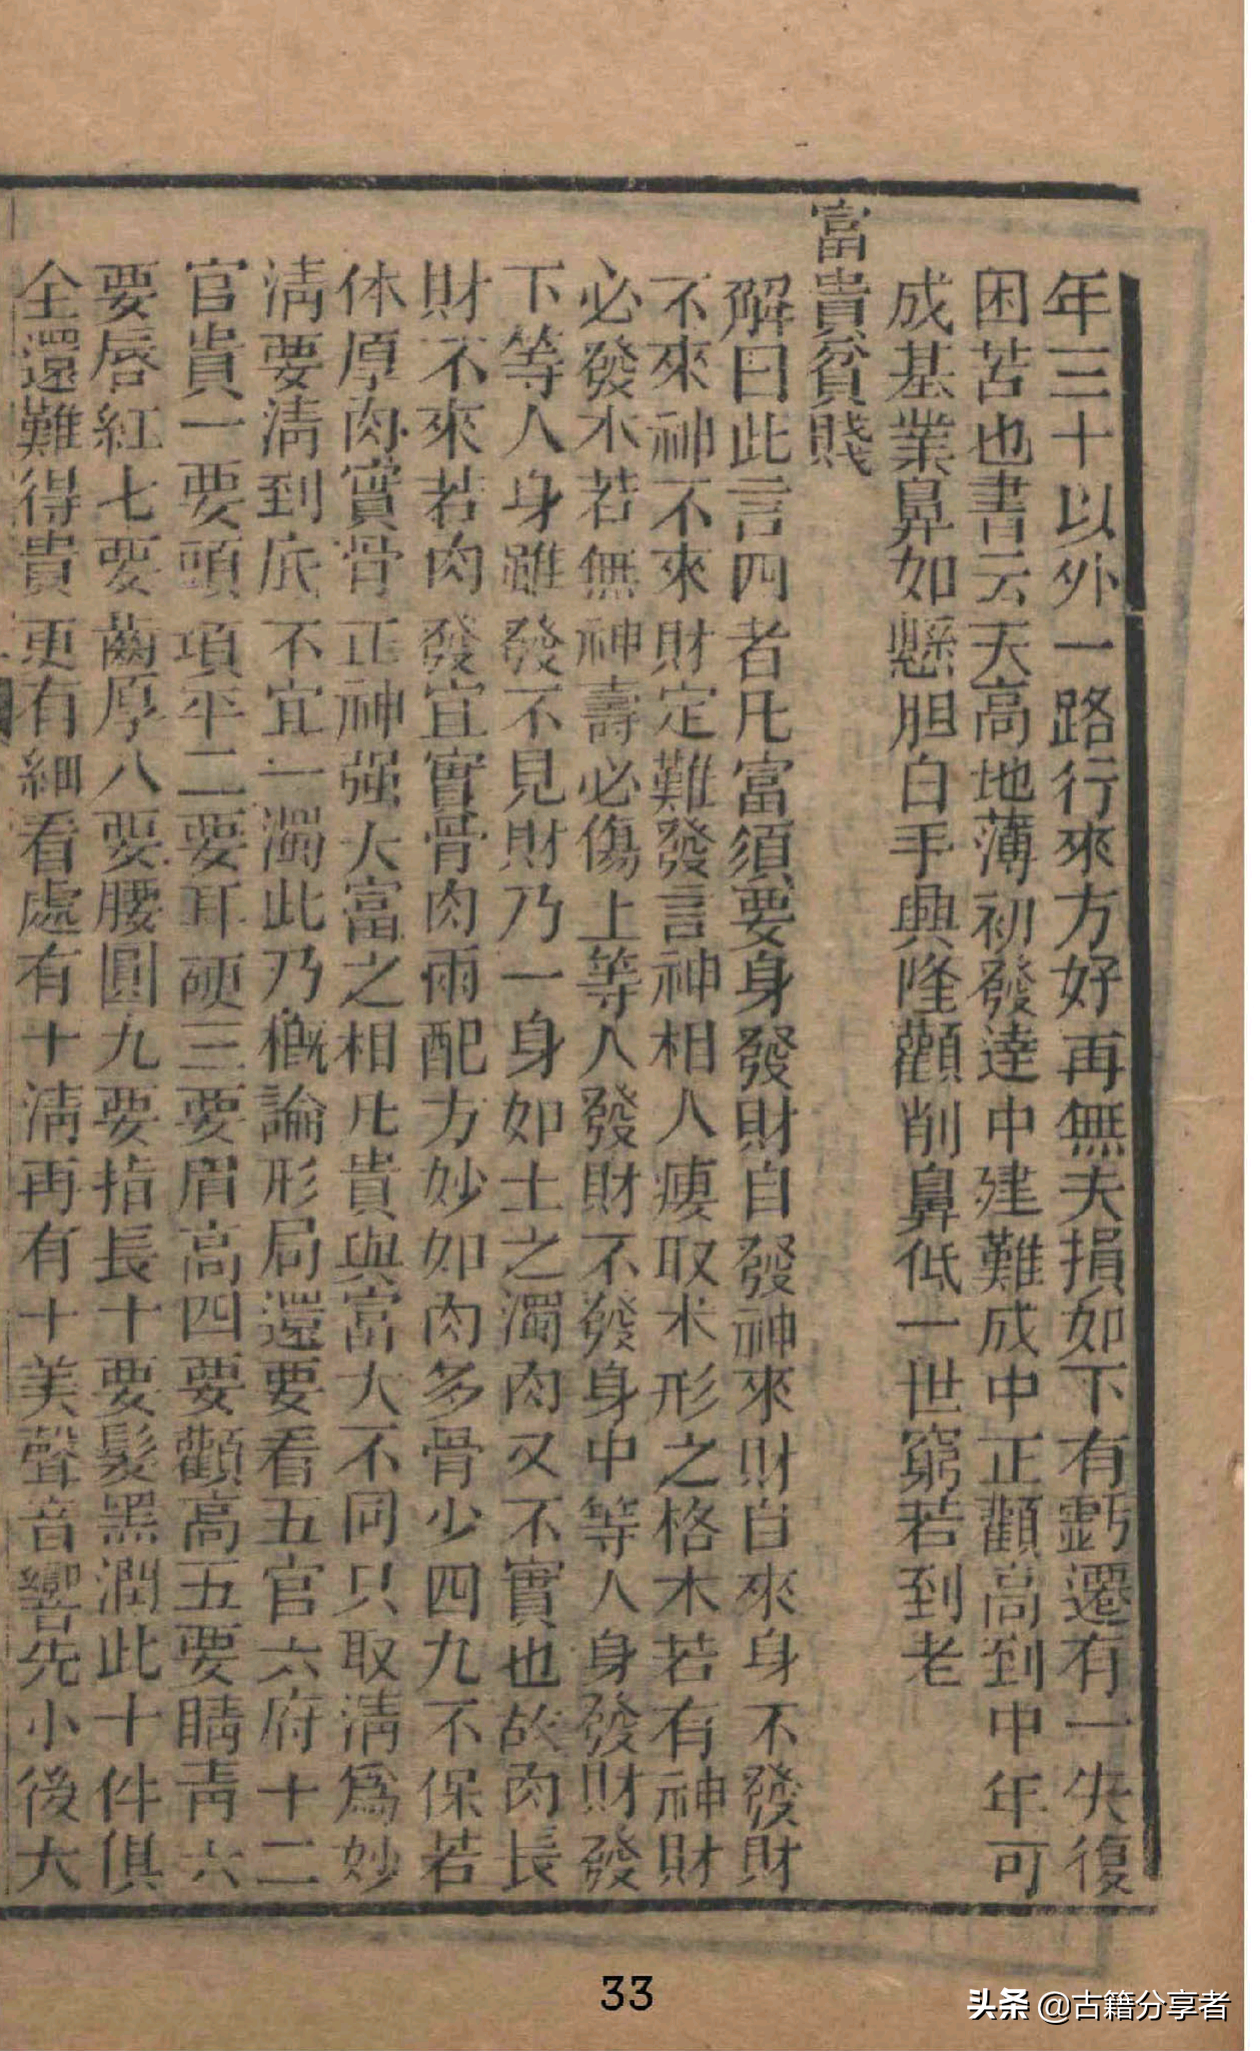 年三十以外一路行來方好再無夫損如下有虧遷有一失復
困苦也書云天高地薄初發達中建難成中正顴高到中年可
成基業鼻如懸胆白手興隆顴削鼻低一世窮若到老
富貴貧賤
解曰此言四者凡富須要身發財自發神來財自來身不發財
不來神不來財定難發言神相人瘦取木形之格木若有神財
必發木若無神壽必傷上等人發財不發身中等人身發財發
下等人身雖發不見財乃一身如土之濁肉又不實也故肉長
財不來若肉發宜實骨肉兩配方妙如肉多骨少四九不保若
体厚肉實骨正神强大富之相凡貴與富大不同只取清爲妙
清要清到底不宜一濁此乃概論形局還要看五官六府十二
官貴一要頭項平二要耳硬三要眉高四要顴高五要睛青六
要唇紅七要齒厚八要腰圓九要指長十要髮黑潤此十件俱
全還難得貴更有細看處有十清再有十美聲音響先小後大
33
头条 @古籍分享者